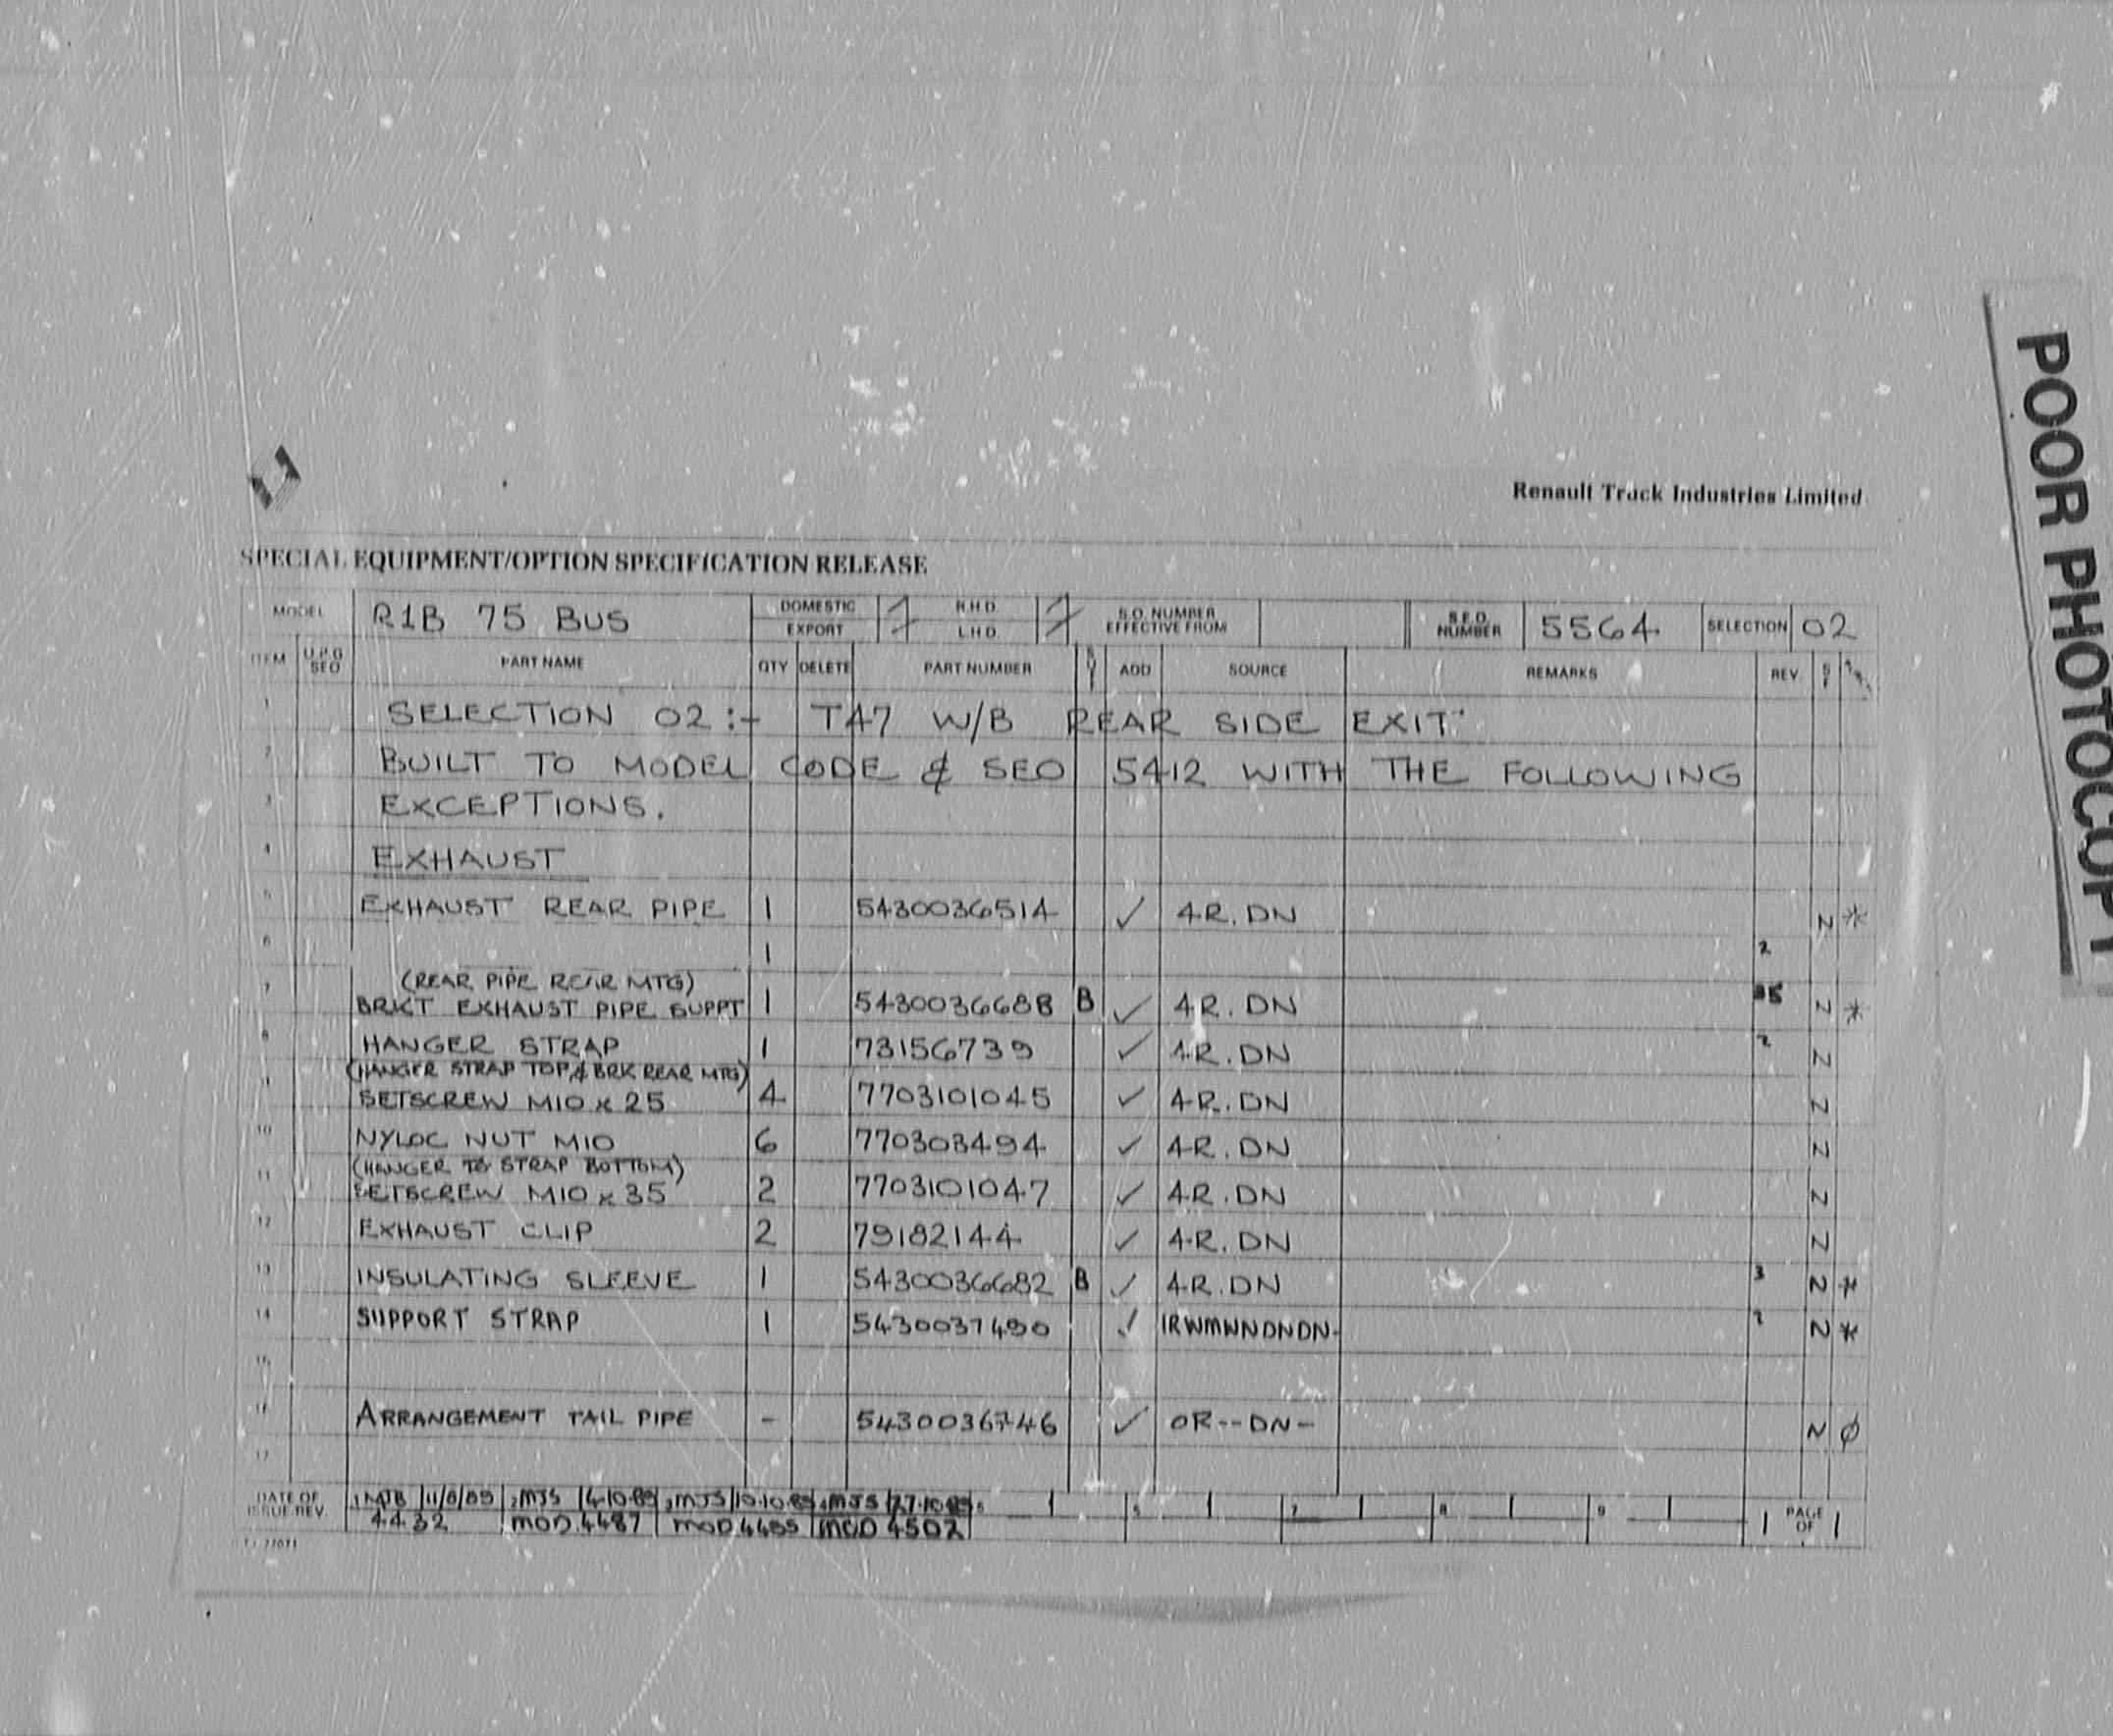 Renault Truck Industries Limited
SPECIAL EQUIPMENT/OPTION SPECIFICATION RELEASE
MODEL R1B 75 BUS DOMESTIC EXPORT R.H.D. L.H.D. S.O. NUMBER EFFECTIVE FROM S.E.O. NUMBER 5564 SELECTION 02
ITEM U.P.G SEQ PART NAME QTY DELETE PART NUMBER ADD SOURCE REMARKS REV.
1 SELECTION 02:- TA7 W/B REAR SIDE EXIT
2 BUILT TO MODEL CODE & SEO 5412 WITH THE FOLLOWING
3 EXCEPTIONS.
4 EXHAUST
5 EXHAUST REAR PIPE 1 5430036514 ✓ 4R.DN N *
6 1 2
(REAR PIPE REAR MTG)
7 BRKT EXHAUST PIPE SUPPT 1 5430036688 B ✓ 4R.DN N *
8 HANGER STRAP 1 73156739 ✓ 4R.DN 2 N
(HANGER STRAP TOP & BRK REAR MTG)
9 SETSCREW M10 x 25 4 7703101045 ✓ 4R.DN N
10 NYLOC NUT M10 6 770303494 ✓ 4R.DN N
(HANGER TO STRAP BOTTOM)
11 SETSCREW M10 x 35 2 7703101047 ✓ 4R.DN N
12 EXHAUST CLIP 2 79182144 ✓ 4R.DN N
13 INSULATING SLEEVE 1 5430036682 B ✓ 4R.DN 3 N *
14 SUPPORT STRAP 1 5430037490 ✓ 1RWMWNDNDN- 2 N *
15
16 ARRANGEMENT TAIL PIPE - 5430036746 ✓ OR--DN- N Ø
17
DATE OF ISSUE REV. 1 MJB 11/8/89 2 MJS 4.10.89 3 MJS 10.10.89 4 MJS 27.10.89 7 8 9 1 PAGE OF 1
4432 MOD.4487 MOD 4495 MOD 4502
POOR PHOTOCOPY